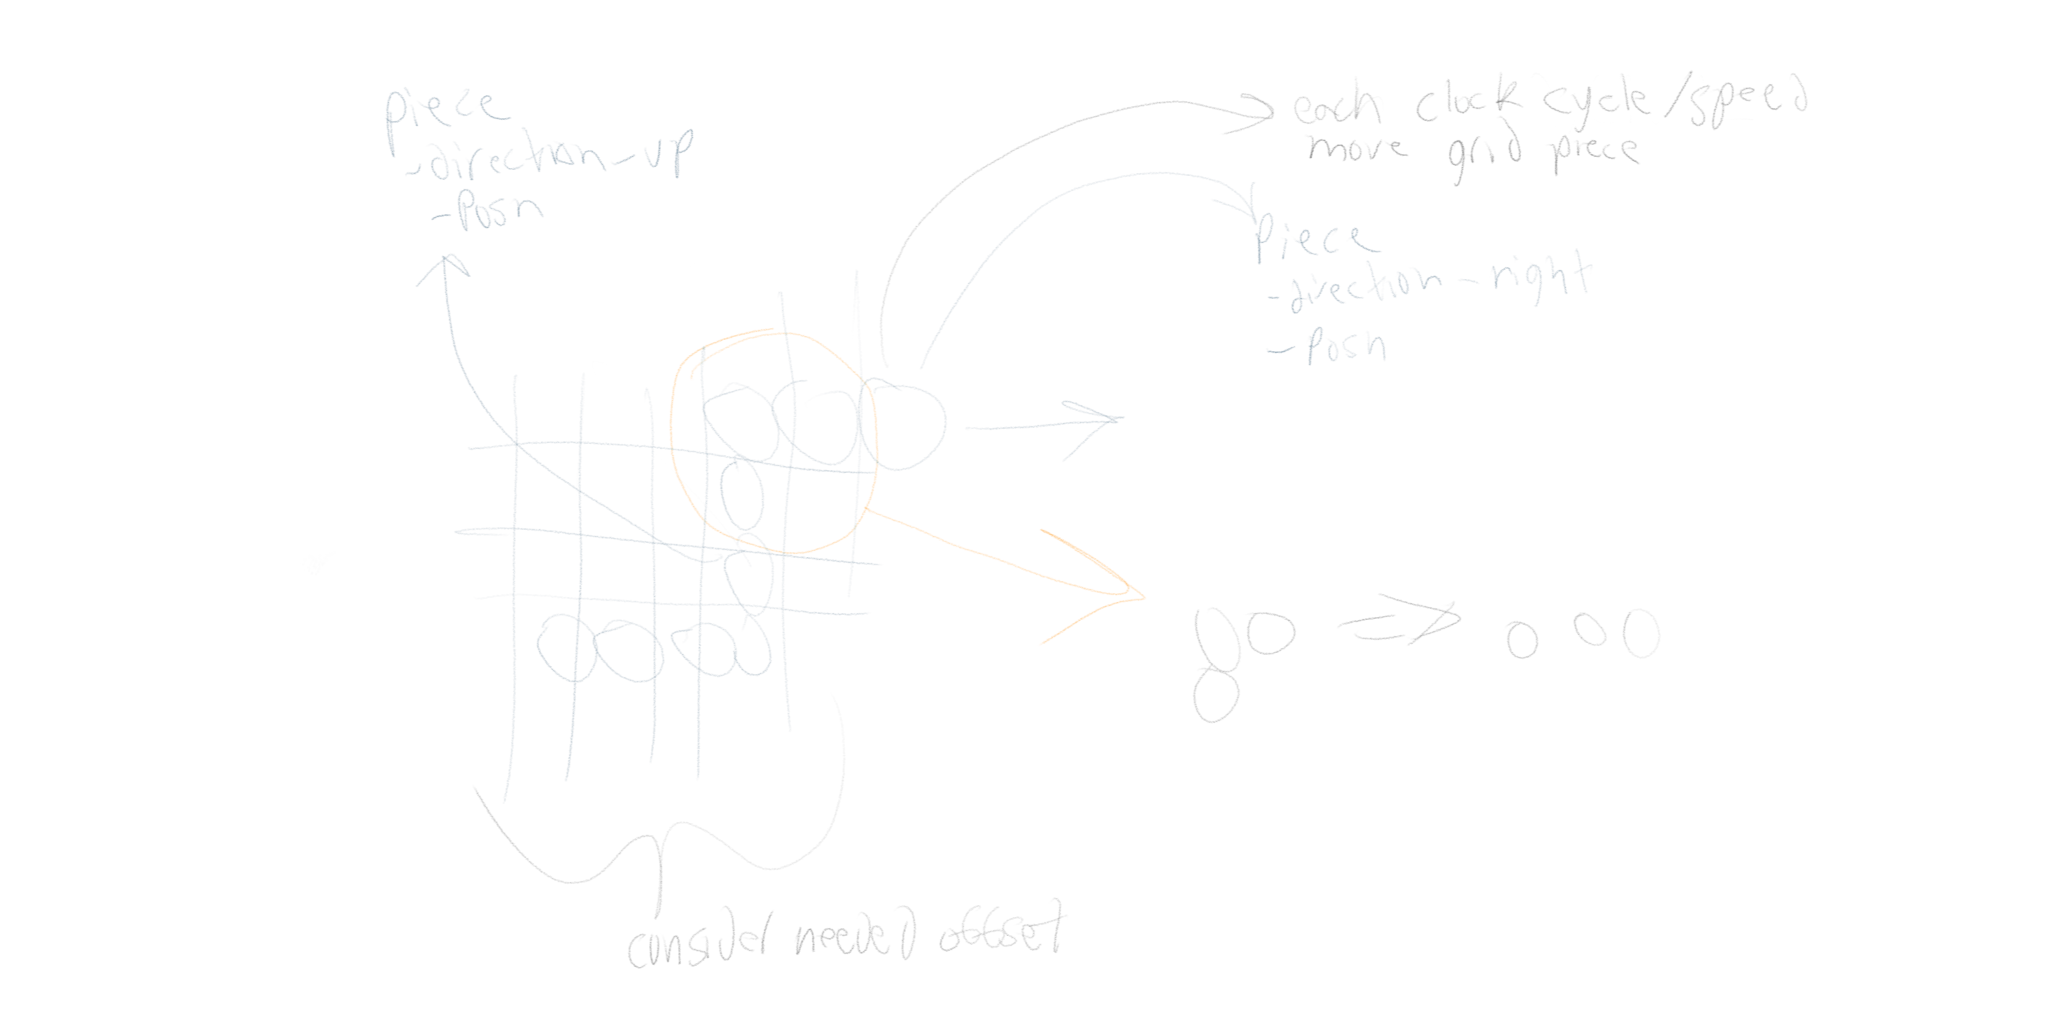 piece
-direction-up
-Posn
each clock cycle/speed
move grid piece
Piece
-direction-right
-Posn
consider needed offset